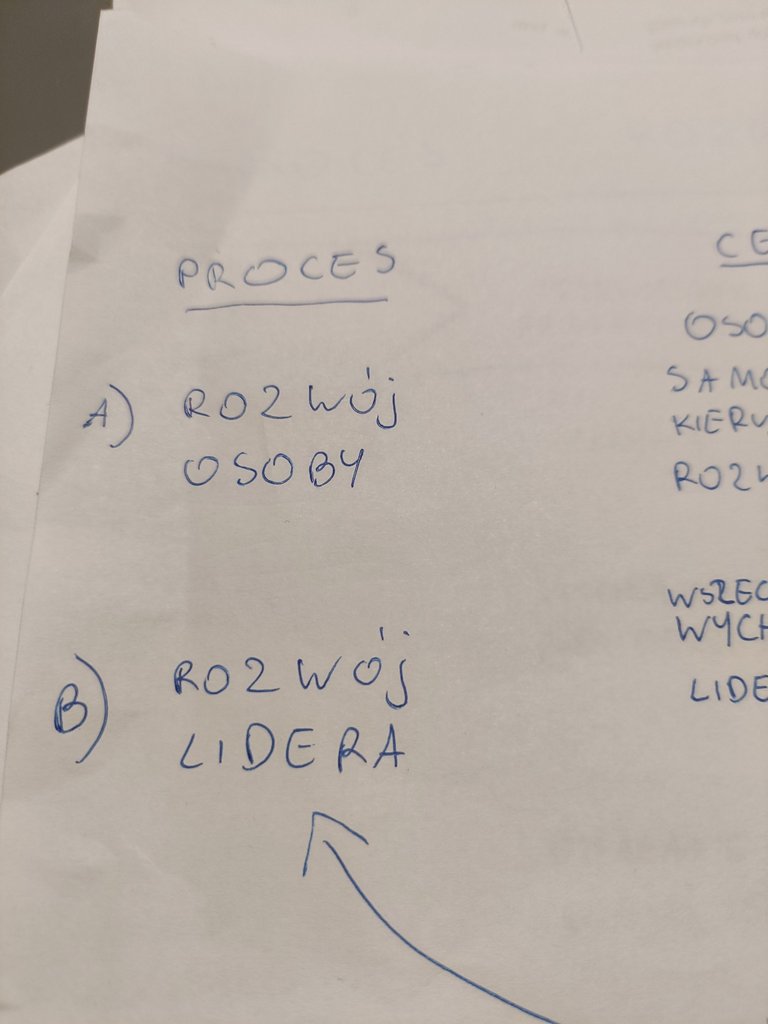 PROCES
A) ROZWÓJ
OSOBY
B) ROZWÓJ
LIDERA
CE
OSO
SAMO
KIERU
ROZW
WSZEC
WYCH
LIDE